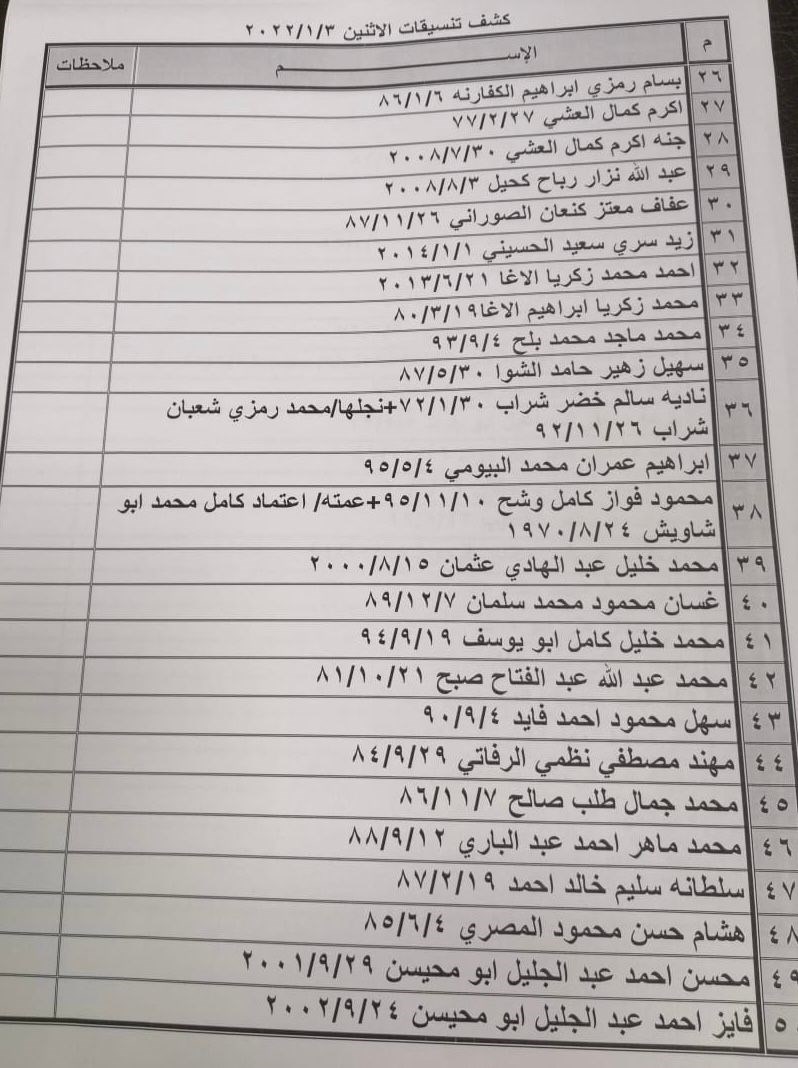 كشف تنسيقات الاثنين ٢٠٢٢/١/٣
م الإســــــــم ملاحظات
٢٦ بسام رمزي ابراهيم الكفارنه ٨٦/١/٦
٢٧ اكرم كمال العشي ٧٧/٢/٢٧
٢٨ جنه اكرم كمال العشي ٢٠٠٨/٧/٣٠
٢٩ عبد الله نزار رباح كحيل ٢٠٠٨/٨/٣
٣٠ عفاف معتز كنعان الصوراني ٨٧/١١/٢٦
٣١ زيد سري سعيد الحسيني ٢٠١٤/١/١
٣٢ احمد محمد زكريا الاغا ٢٠١٣/٦/٢١
٣٣ محمد زكريا ابراهيم الاغا٨٠/٣/١٩
٣٤ محمد ماجد محمد بلح ٩٣/٩/٤
٣٥ سهيل زهير حامد الشوا ٨٧/٥/٣٠
٣٦ ناديه سالم خضر شراب ٧٢/١/٣٠+نجلها/محمد رمزي شعبان
شراب ٩٢/١١/٢٦
٣٧ ابراهيم عمران محمد البيومي ٩٥/٥/٤
٣٨ محمود فواز كامل وشح ٩٥/١١/١٠+عمته/ اعتماد كامل محمد ابو
شاويش ١٩٧٠/٨/٢٤
٣٩ محمد خليل عبد الهادي عثمان ٢٠٠٠/٨/١٥
٤٠ غسان محمود محمد سلمان ٨٩/١٢/٧
٤١ محمد خليل كامل ابو يوسف ٩٤/٩/١٩
٤٢ محمد عبد الله عبد الفتاح صبح ٨١/١٠/٢١
٤٣ سهل محمود احمد فايد ٩٠/٩/٤
٤٤ مهند مصطفي نظمي الرفاتي ٨٤/٩/٢٩
٤٥ محمد جمال طلب صالح ٨٦/١١/٧
٤٦ محمد ماهر احمد عبد الباري ٨٨/٩/١٢
٤٧ سلطانه سليم خالد احمد ٨٧/٢/١٩
٤٨ هشام حسن محمود المصري ٨٥/٦/٤
٤٩ محسن احمد عبد الجليل ابو محيسن ٢٠٠١/٩/٢٩
٥٠ فايز احمد عبد الجليل ابو محيسن ٢٠٠٢/٩/٢٤